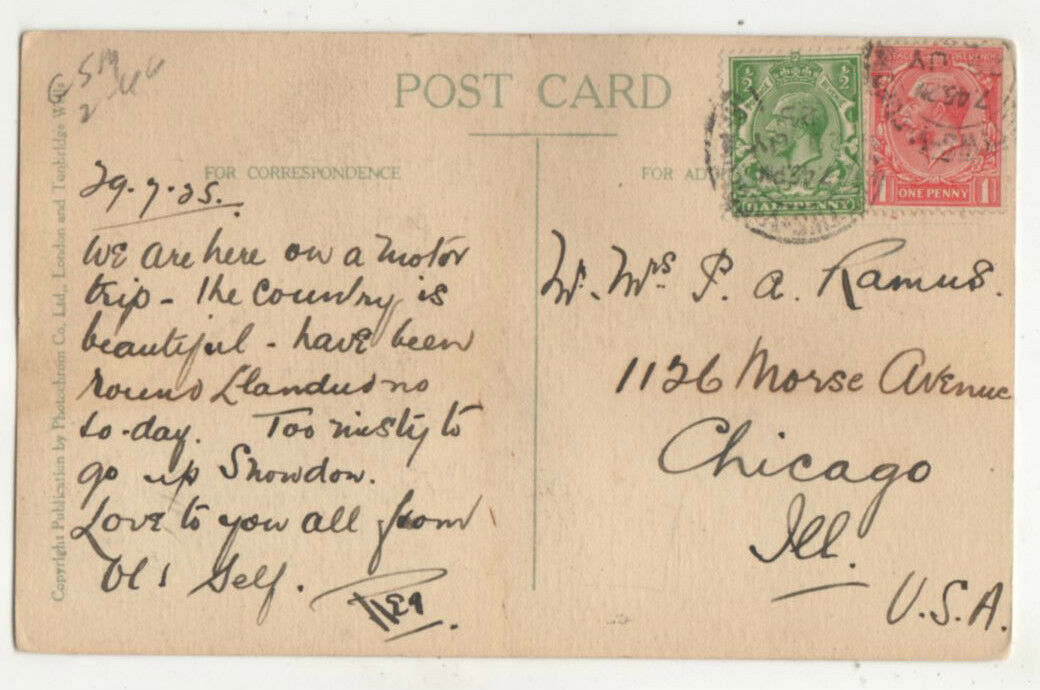 POST CARD
FOR CORRESPONDENCE
29.7.25.
We are here on a motor
trip - the country is
beautiful - have been
round Llandudno
to-day. Too misty to
go up Snowdon.
Love to you all from
Self.
Reg
FOR ADD
½ ½
HALFPENNY
1 ONE PENNY 1
7 45 PM
JY
25
Mr. Mrs P. A. Ramus.
1126 Morse Avenue
Chicago
Ill.
U.S.A.
Copyright Publication by Photochrom Co., Ltd., London and Tunbridge Wells